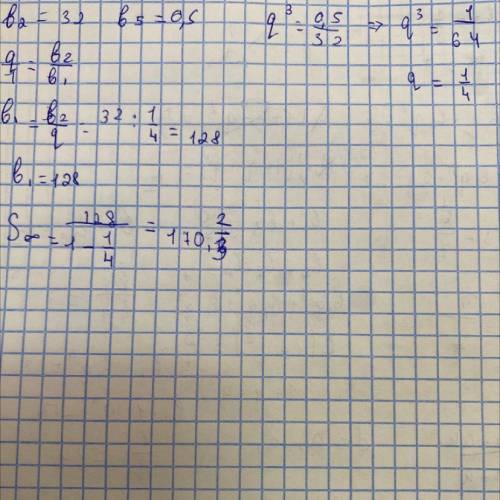 b₂ = 32 b₅ = 0,5 q³ = 0,5/32 ⇒ q³ = 1/64
q/1 = b₂/b₁ q = 1/4
b₁ = b₂/q = 32 : 1/4 = 128
b₁ = 128
S∞ = 128/(1 - 1/4) = 170, 2/3